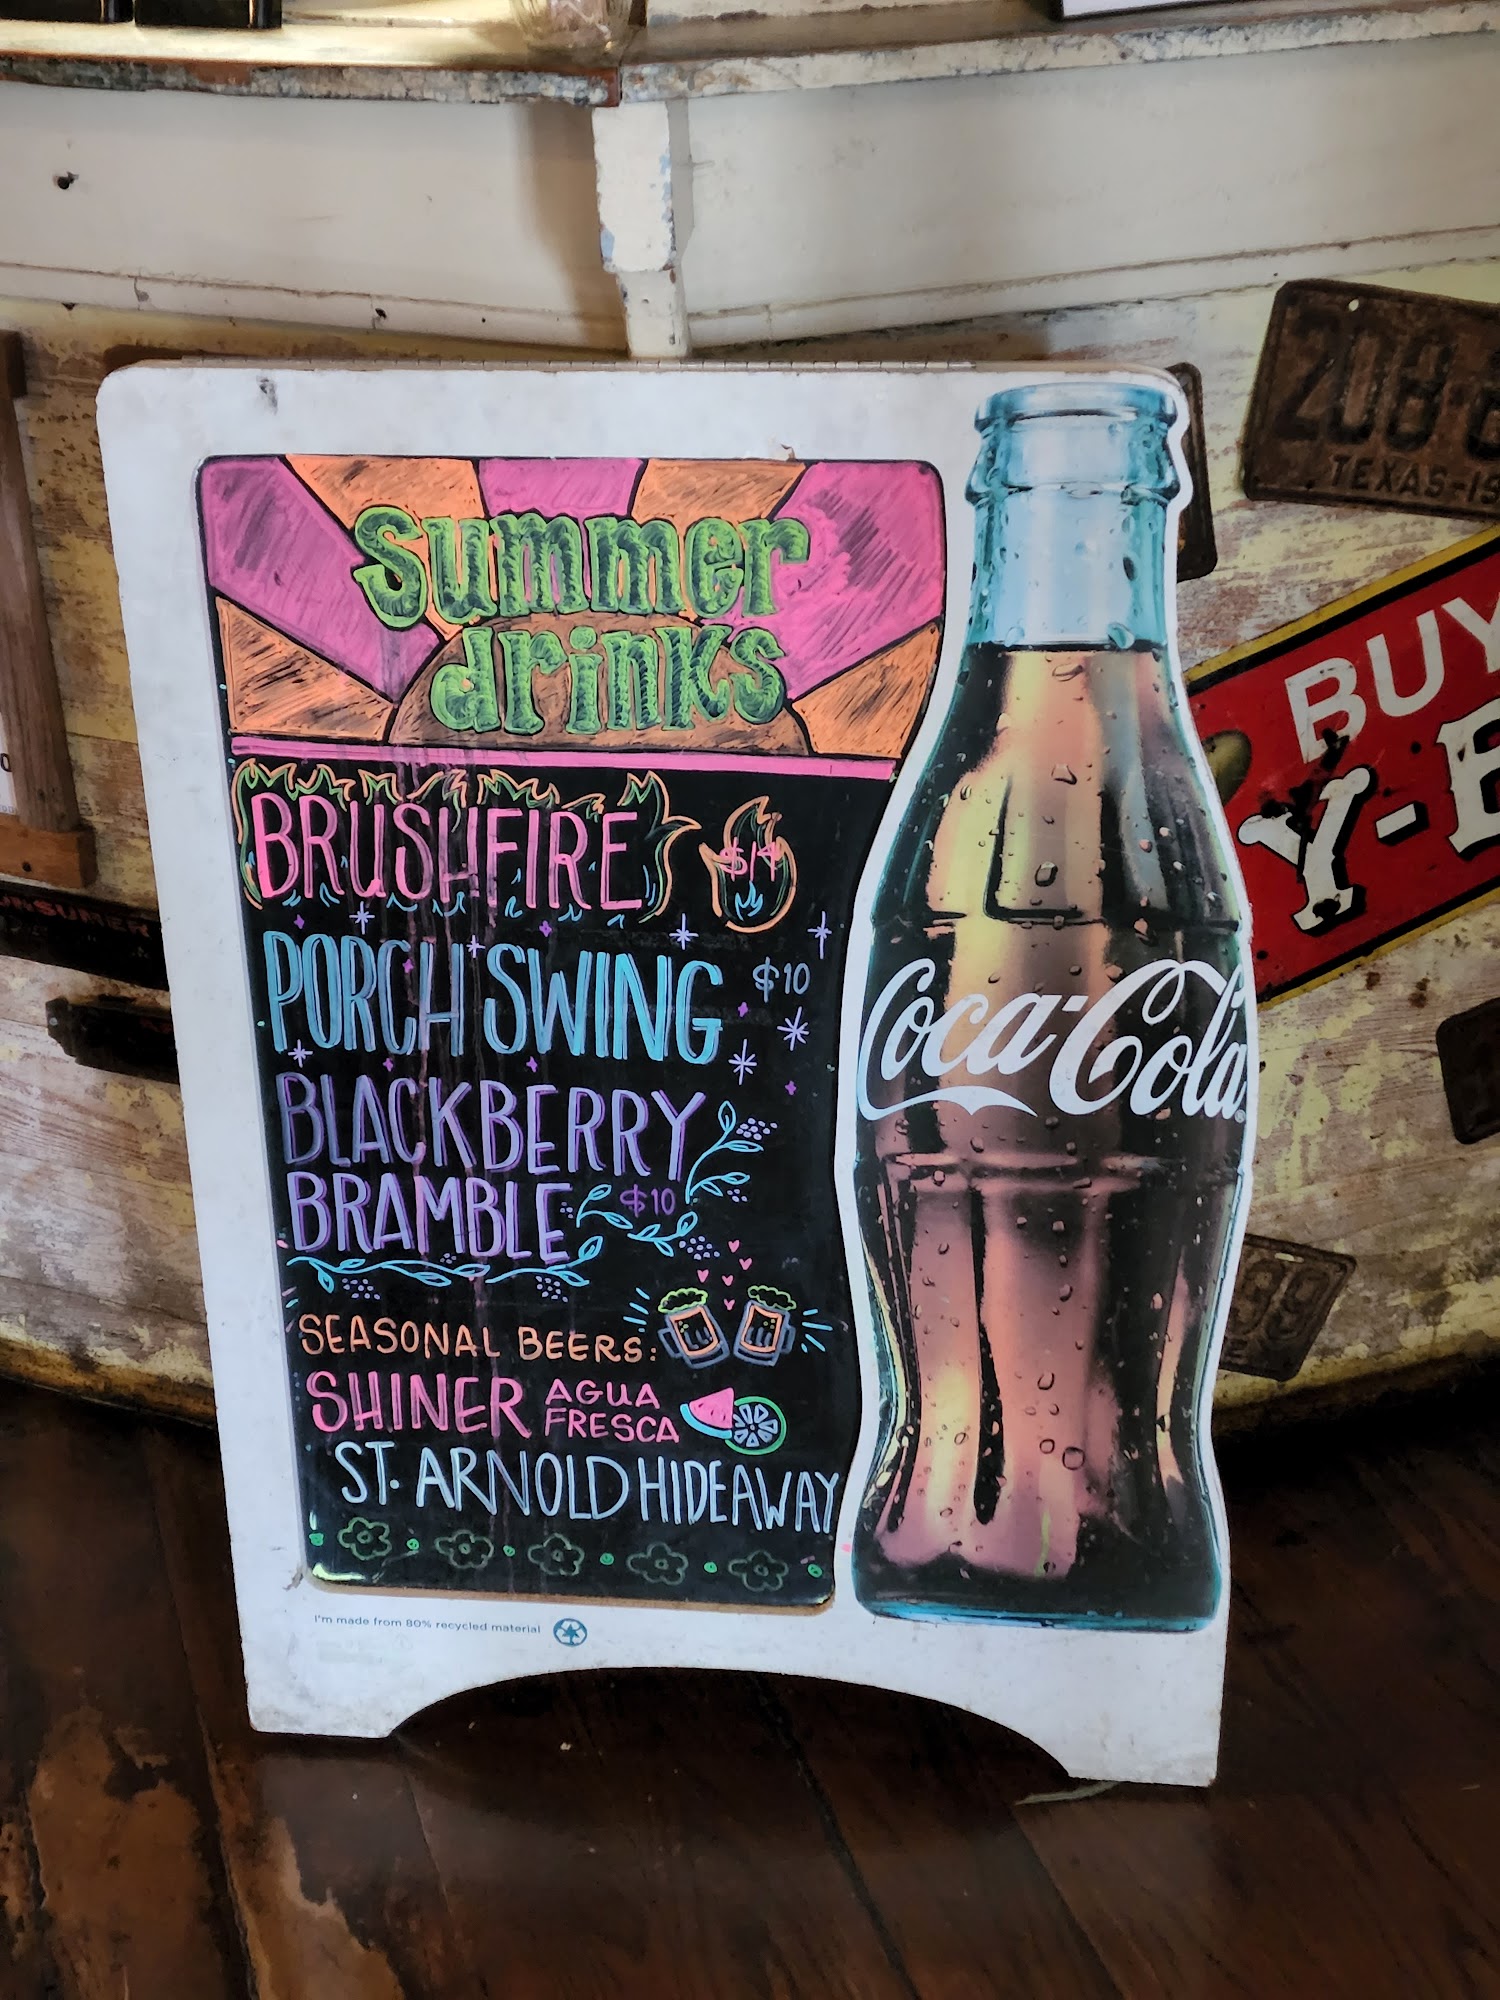 Summer
drinks
BRUSHFIRE $14
PORCH SWING $10
BLACKBERRY
BRAMBLE $10
SEASONAL BEERS:
SHINER AGUA
FRESCA
ST. ARNOLD HIDEAWAY
I'm made from 80% recycled material
Coca-Cola
TEXAS-19
BUY